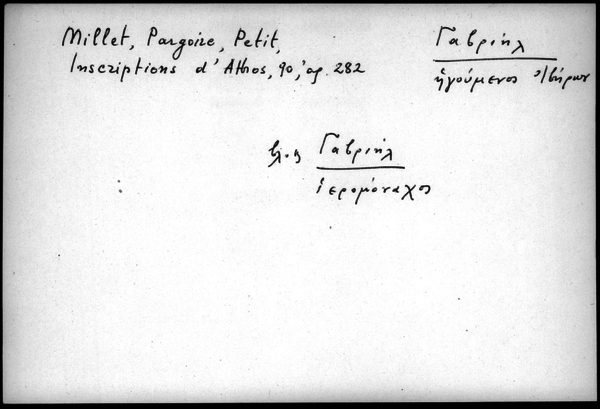 Millet, Pargoire, Petit,
Inscriptions d'Athos, 90, ἀρ. 282
Γαβριήλ
ἡγούμενος Ἰβήρων
βλ. ἐ. Γαβριήλ
ἱερομόναχος